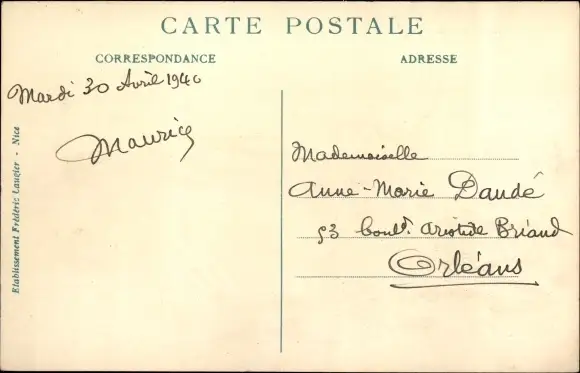 CARTE POSTALE
CORRESPONDANCE
ADRESSE
Mardi 30 Avril 1940
Maurice
Mademoiselle
Anne-Marie Daudé
53 boulᵈ. Aristide Briand
Orléans
Etablissement Fréderic Laugier - Nice